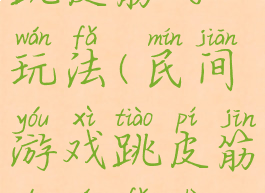 wán fǎ mín jiān
玩法(民间
yóu xì tiào pí jīn
游戏跳皮筋